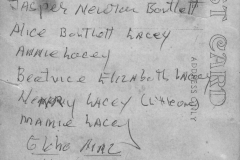 Jasper Newton Bartlett
Alice Bartlett Lacey
Annie Lacey
Beatrice Elizabeth Lacey
Lacey
Mamie Lacey
Echo Mae
ST CARD
ADDRESS ONLY